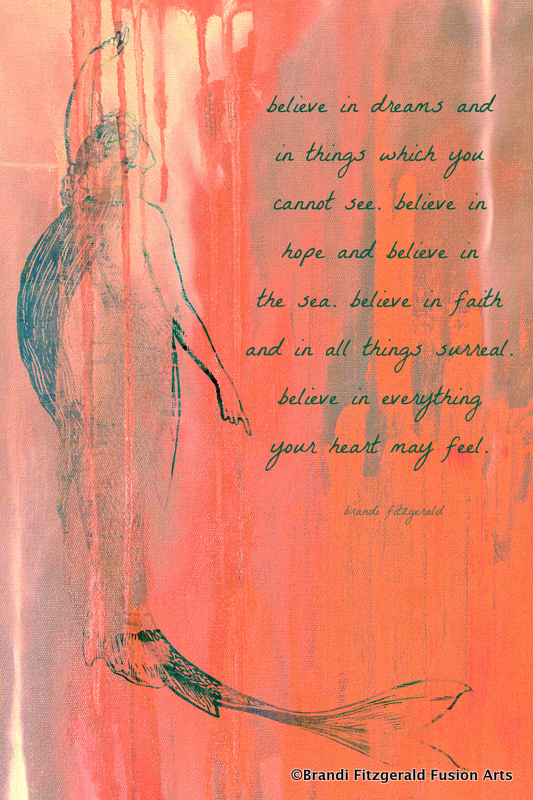 believe in dreams and
in things which you
cannot see. believe in
hope and believe in
the sea. believe in faith
and in all things surreal.
believe in everything
your heart may feel.
brandi fitzgerald
©Brandi Fitzgerald Fusion Arts